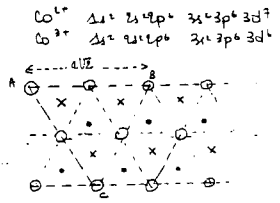 Co²⁺ 1s² 2s² 2p⁶ 3s² 3p⁶ 3d⁷
Co³⁺ 1s² 2s² 2p⁶ 3s² 3p⁶ 3d⁶
a√2
A B
C